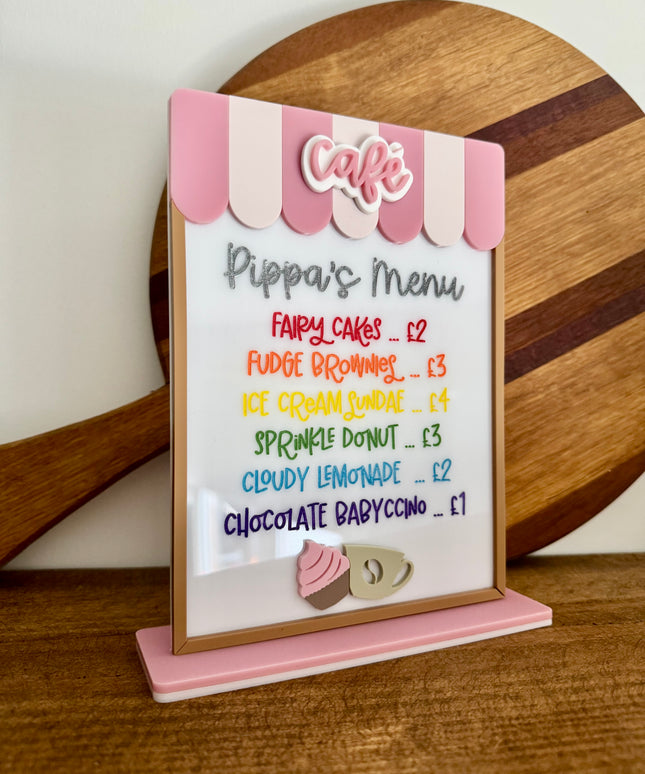 café
Pippa's Menu
FAIRY CAKES ... £2
FUDGE BROWNIES ... £3
ICE CREAM SUNDAE ... £4
SPRINKLE DONUT ... £3
CLOUDY LEMONADE ... £2
CHOCOLATE BABYCCINO ... £1